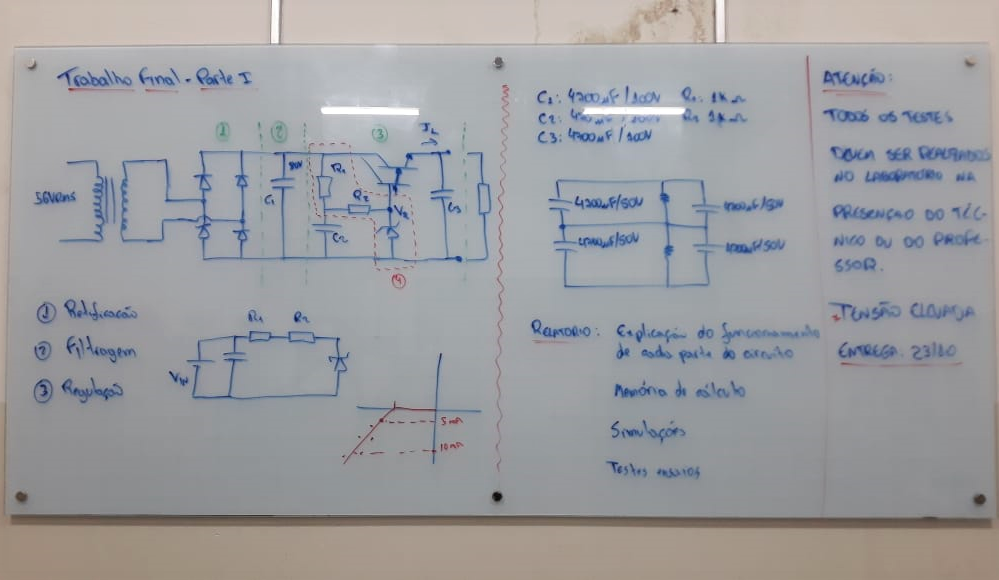 Trabalho Final - Parte I
1
2
3
56Vrms
R1
R2
C1
C2
V2
IL
C3
4
1 Retificação
2 Filtragem
3 Regulação
R1
R2
VIN
5mA
10mA
C1: 4700µF/100V R1: 1KΩ
C2: /100V 1KΩ
C3: 4700µF/100V
4700µF/50V
4700µF/50V
4700µF/50V
4700µF/50V
RELATÓRIO: Explicação do funcionamento
de cada parte do circuito
Memória de cálculo
Simulações
Testes ensaios
ATENÇÃO:
TODOS OS TESTES
DEVEM SER REALIZADOS
NO LABORATÓRIO NA
PRESENÇA DO TÉC-
NICO OU DO PROFE-
SSOR.
TENSÃO ELEVADA
ENTREGA: 23/10